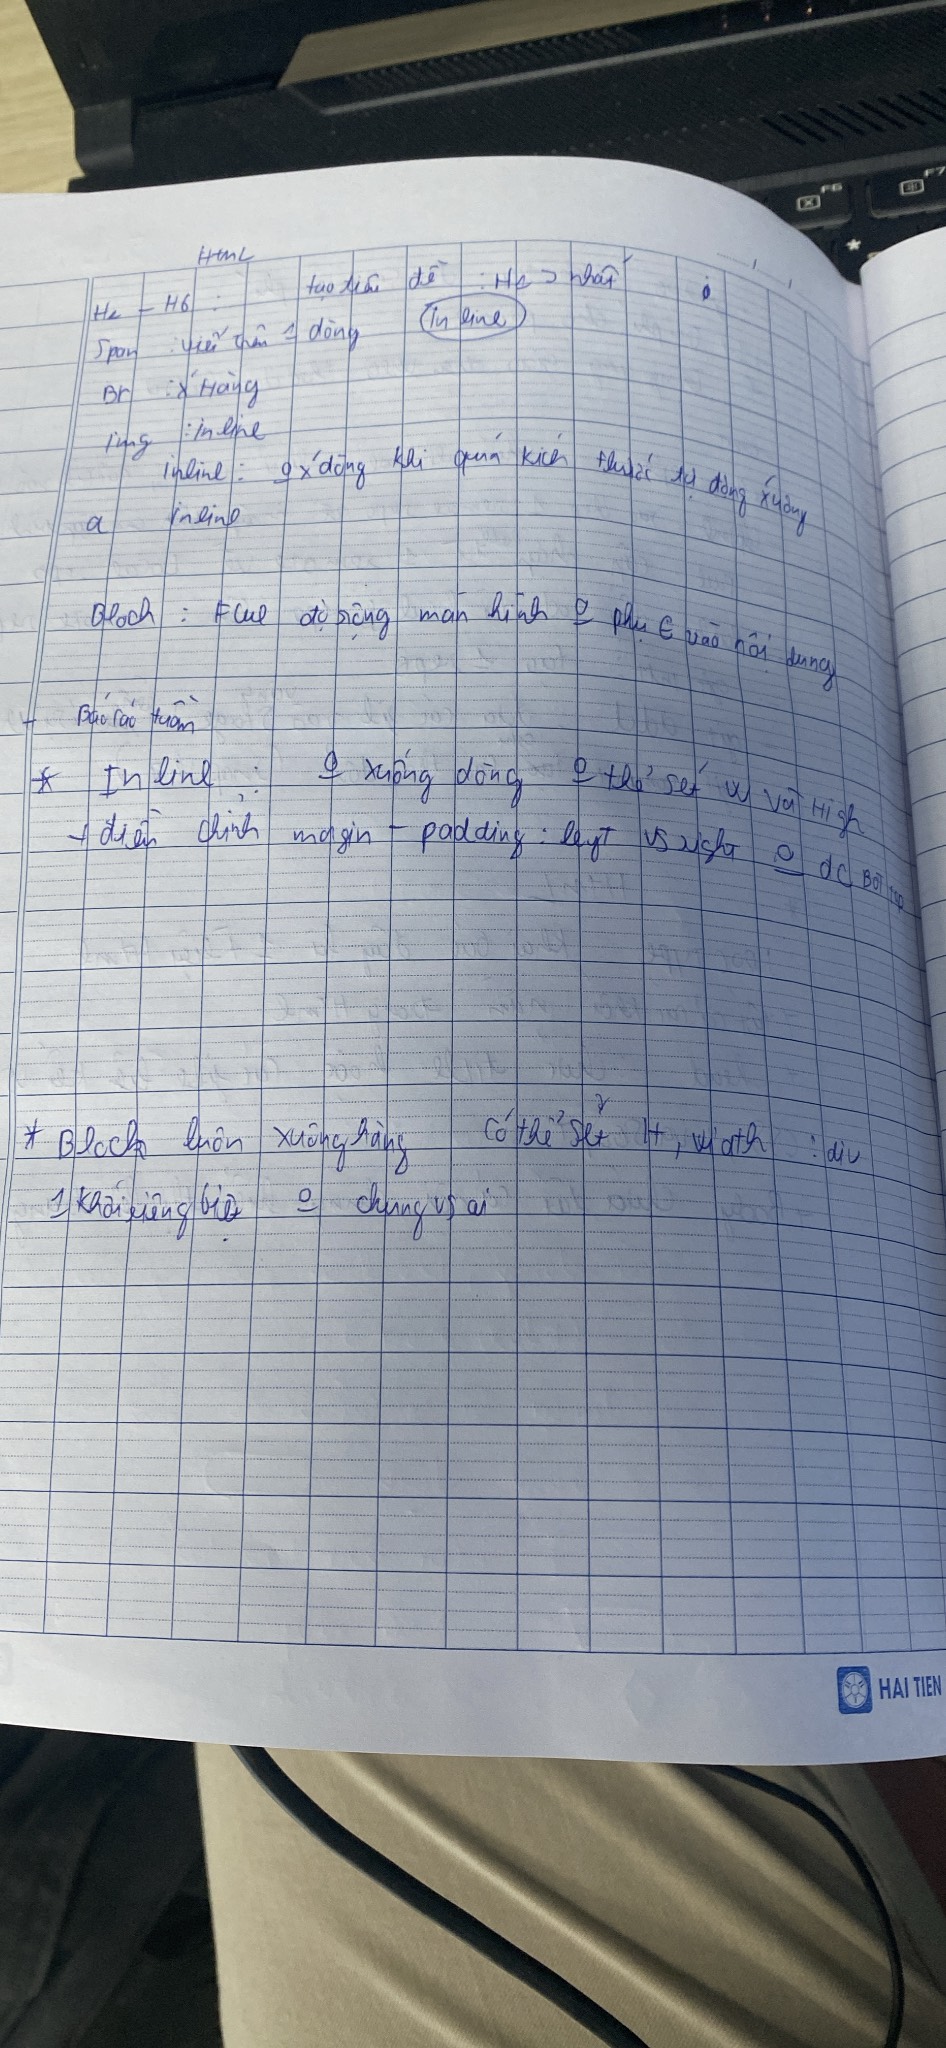 HTML
H1 - H6 : tạo tiêu đề : H1 > nhất
Span : viết trên 1 dòng (In line)
Br : x' Hàng
img : inline
inline : o x' dòng khi quá kích thước tự động xuống
a inline
Block : Full độ rộng màn hình o phụ € vào nội dung
- Báo cáo tuần
* In line : o xuống dòng o thể set W và High
+ điều chỉnh margin - padding : left vs right o dc Bot top
* Block luôn xuống hàng có thể set H, width : div
1 khối riêng biệt o chung vs ai
HAI TIEN
F6
F7